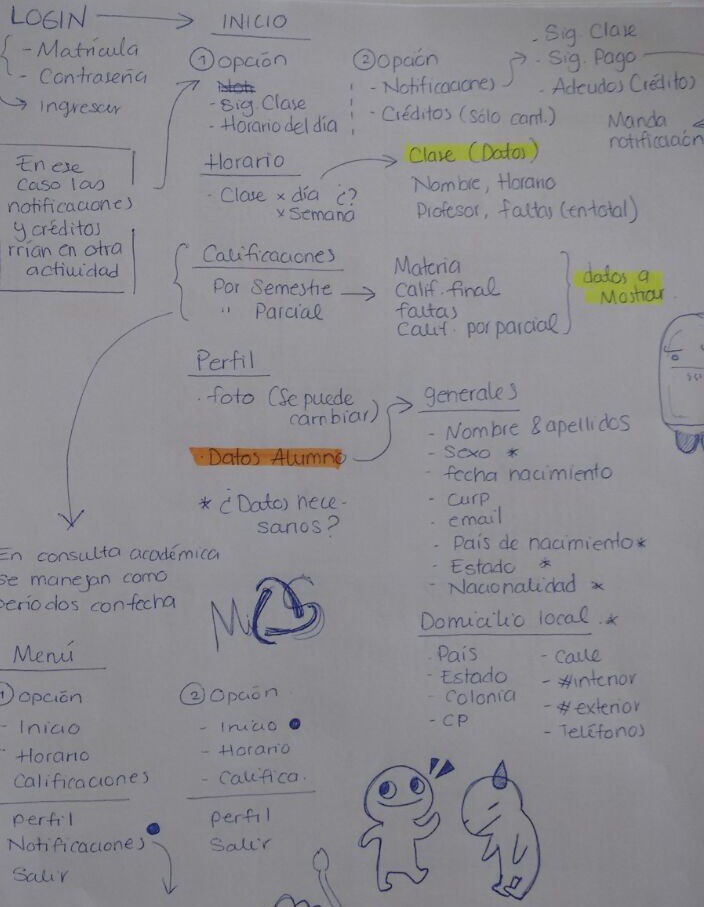 LOGIN
- Matrícula
- Contraseña
Ingresar
INICIO
① Opción
- Sig. Clase
- Horario del día
② Opción
- Notificaciones
- Créditos (Sólo cant.)
- Sig. Clase
- Sig. Pago
- Adeudos (Crédito)
Manda
notificación
En ese
caso las
notificaciones
y créditos
rrían en otra
actividad
Horario
- Clase x día ¿?
x Semana
Clase (Datos)
Nombre, Horario
Profesor, faltas (en total)
Calificaciones
Por Semestre
" Parcial
Materia
Calif. final
faltas
Calif. por parcial
datos a
Mostrar.
Perfil
. foto (Se puede
cambiar)
. Datos Alumno
* ¿Datos nece-
sarios?
generales
- Nombre & apellidos
- Sexo *
- fecha nacimiento
- curp
- email
- País de nacimiento *
- Estado *
- Nacionalidad *
Domicilio local. *
. País
- Estado
- Colonia
- CP
- Calle
- #interior
- #exterior
- Teléfonos
En consulta académica
se manejan como
períodos con fecha
Menú
① Opción
- Inicio
- Horario
Calificaciones
Perfil
Notificaciones
Salir
② Opción
- Inicio
- Horario
- Califica.
Perfil
Salir